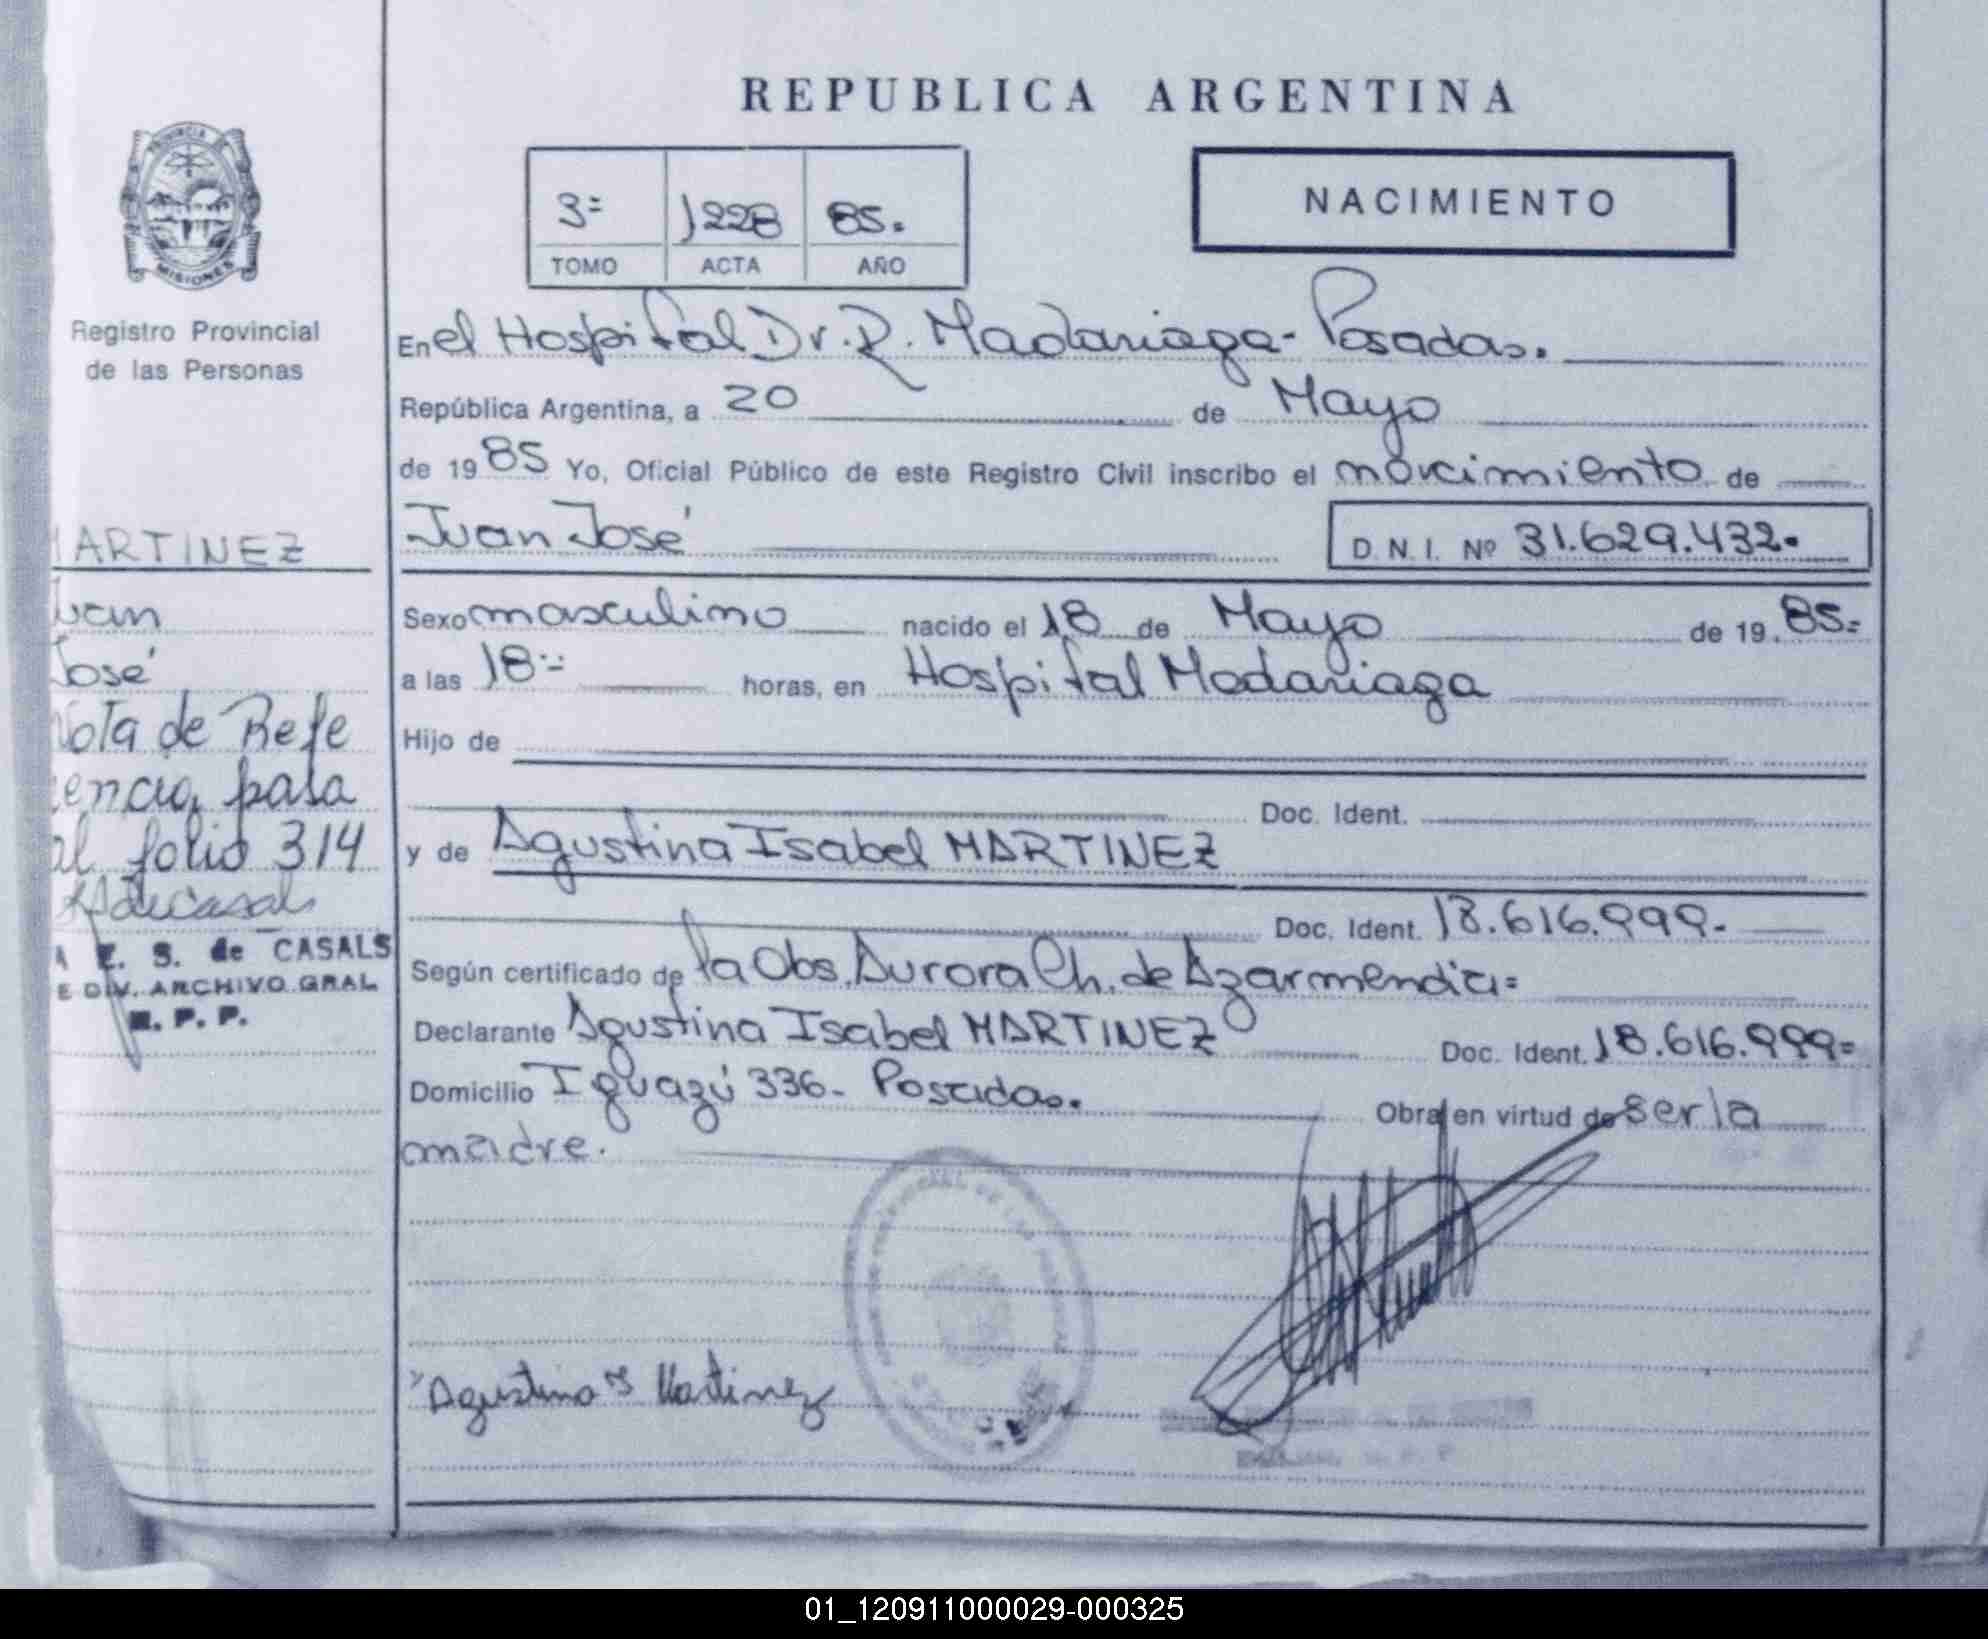 REPUBLICA ARGENTINA
PROVINCIA DE
MISIONES
Registro Provincial
de las Personas
3=
1228
85.
TOMO
ACTA
AÑO
NACIMIENTO
En el Hospital Dr. R. Madariaga - Posadas.
República Argentina, a 20 de Mayo
de 1985 Yo, Oficial Público de este Registro Civil inscribo el nacimiento de
Juan José
D. N. I. Nº 31.629.432.
Sexo masculino nacido el 18 de Mayo de 19.85=
a las 18= horas, en Hospital Madariaga
Hijo de
Doc. Ident.
y de Agustina Isabel MARTINEZ
Doc. Ident. 18.616.999-
Según certificado de la Obs. Aurora Ch. de Azarmendia=
Declarante Agustina Isabel MARTINEZ Doc. Ident. 18.616.999=
Domicilio Iguazú 336- Posadas. Obra en virtud de ser la
madre.
Agustina I Martinez
ARTINEZ
Juan
José
Nota de Refe
rencia, pasa
al folio 314
E. S. de CASALS
DIV. ARCHIVO GRAL
R. P. P.
01_120911000029-000325